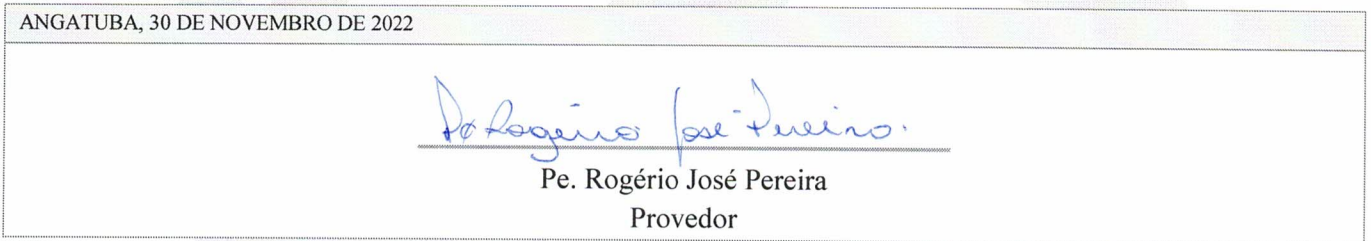 ANGATUBA, 30 DE NOVEMBRO DE 2022
Pe Rogério José Pereira.
Pe. Rogério José Pereira
Provedor